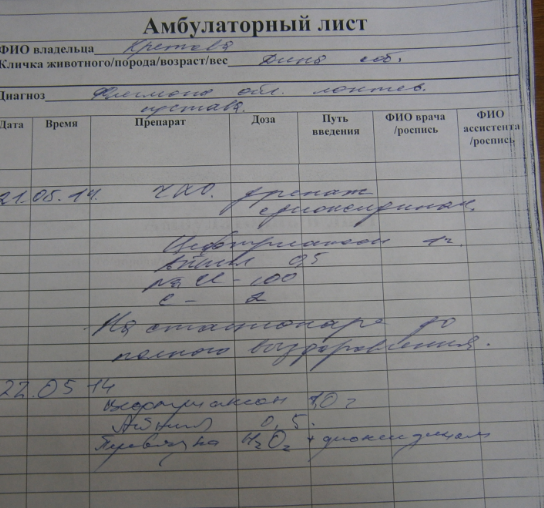 Амбулаторный лист
ФИО владельца Кретова
Кличка животного/порода/возраст/вес Дина соб.
Диагноз Флегмона обл. локтев.
сустава.
Дата Время Препарат Доза Путь введения ФИО врача /роспись ФИО ассистента /роспись
21.05.14. дренаж
с диоксидином.
Цефтриаксон 1г.
Айнил 0,5
NaCl - 100
C - 2
На стационаре до
полного выздоровления.
22.05 14
Цефтриаксон 1,0 г
Айнил 0,5.
Перевязка H2O2 + диоксидином